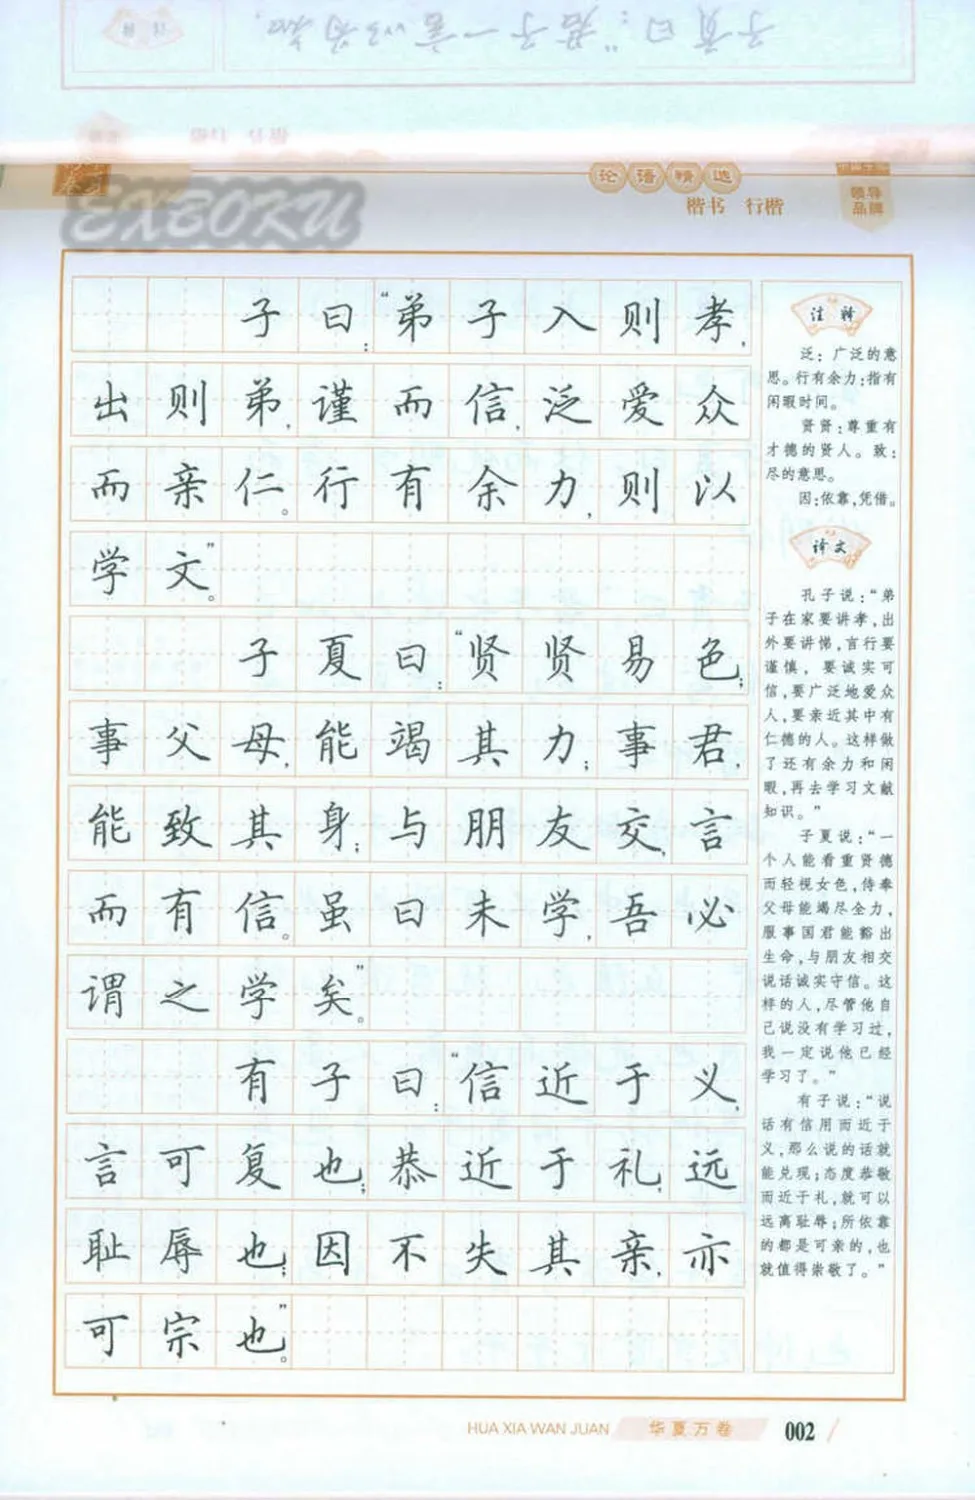 子贡曰："君子一言以为知,
论语精选
楷书 行楷
领导
品牌
EXBOKU
子曰："弟子入则孝,
出则弟,谨而信,泛爱众
而亲仁。行有余力,则以
学文。"
子夏曰："贤贤易色;
事父母,能竭其力;事君,
能致其身;与朋友交,言
而有信。虽曰未学,吾必
谓之学矣。"
有子曰："信近于义,
言可复也;恭近于礼,远
耻辱也;因不失其亲,亦
可宗也。"
注释
泛：广泛的意
思。行有余力：指有
闲暇时间。
贤贤：尊重有
才德的贤人。致：
尽的意思。
因：依靠,凭借。
译文
孔子说："弟
子在家要讲孝,出
外要讲悌,言行要
谨慎，要诚实可
信,要广泛地爱众
人,要亲近其中有
仁德的人。这样做
了还有余力和闲
暇,再去学习文献
知识。"
子夏说："一
个人能看重贤德
而轻视女色,侍奉
父母能竭尽全力,
服事国君能豁出
生命,与朋友相交
说话诚实守信。这
样的人,尽管他自
己说没有学习过,
我一定说他已经
学习了。"
有子说："说
话有信用而近于
义,那么说的话就
能兑现;态度恭敬
而近于礼,就可以
远离耻辱;所依靠
的都是可亲的,也
就值得崇敬了。"
HUA XIA WAN JUAN 华夏万卷 002